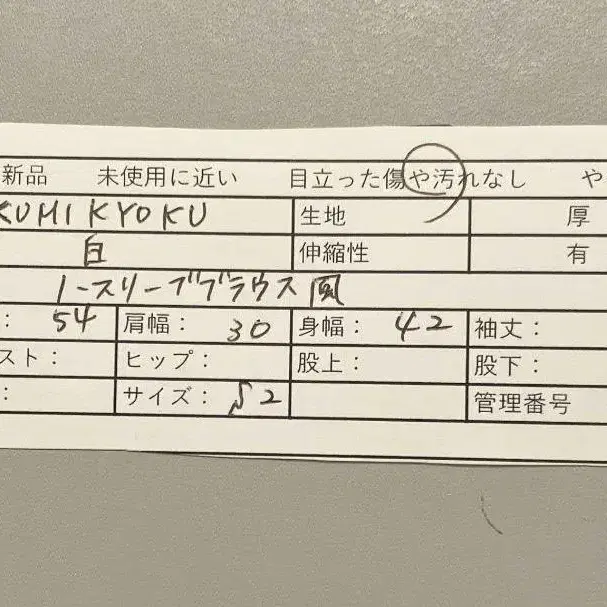 新品 未使用に近い 目立った傷や汚れなし や
KUMIKYOKU 生地 厚
白 伸縮性 有
ノースリーブブラウス風
: 54 肩幅: 30 身幅: 42 袖丈:
スト: ヒップ: 股上: 股下:
: サイズ: S2 管理番号